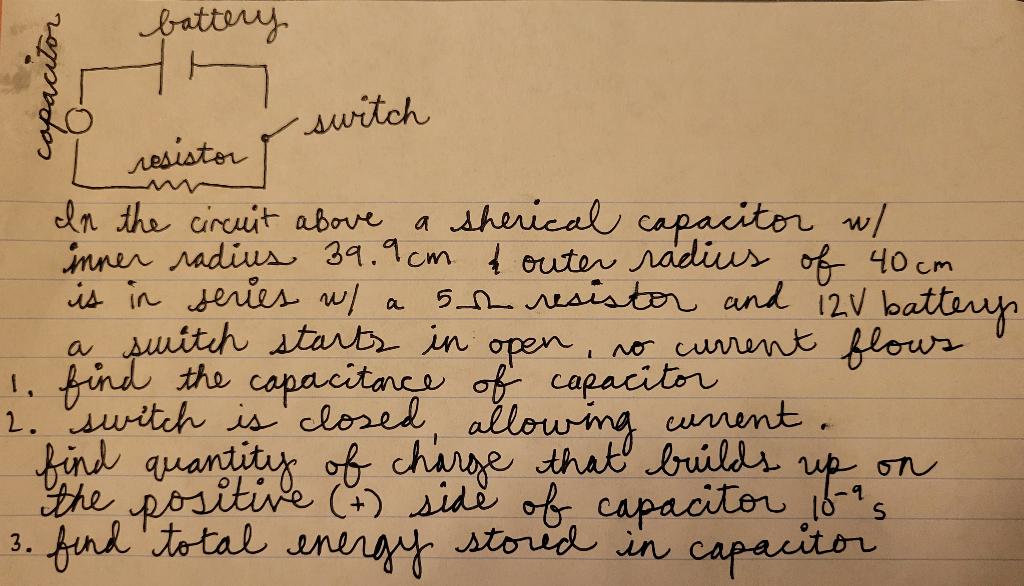 battery
capacitor
switch
resistor
In the circuit above a sherical capacitor w/
inner radius 39.9 cm & outer radius of 40 cm
is in series w/ a 5Ω resistor and 12V battery
a switch starts in open, no current flows
1. find the capacitance of capacitor
2. switch is closed, allowing current.
find quantity of charge that builds up on
the positive (+) side of capacitor 10⁻⁹ s
3. find total energy stored in capacitor